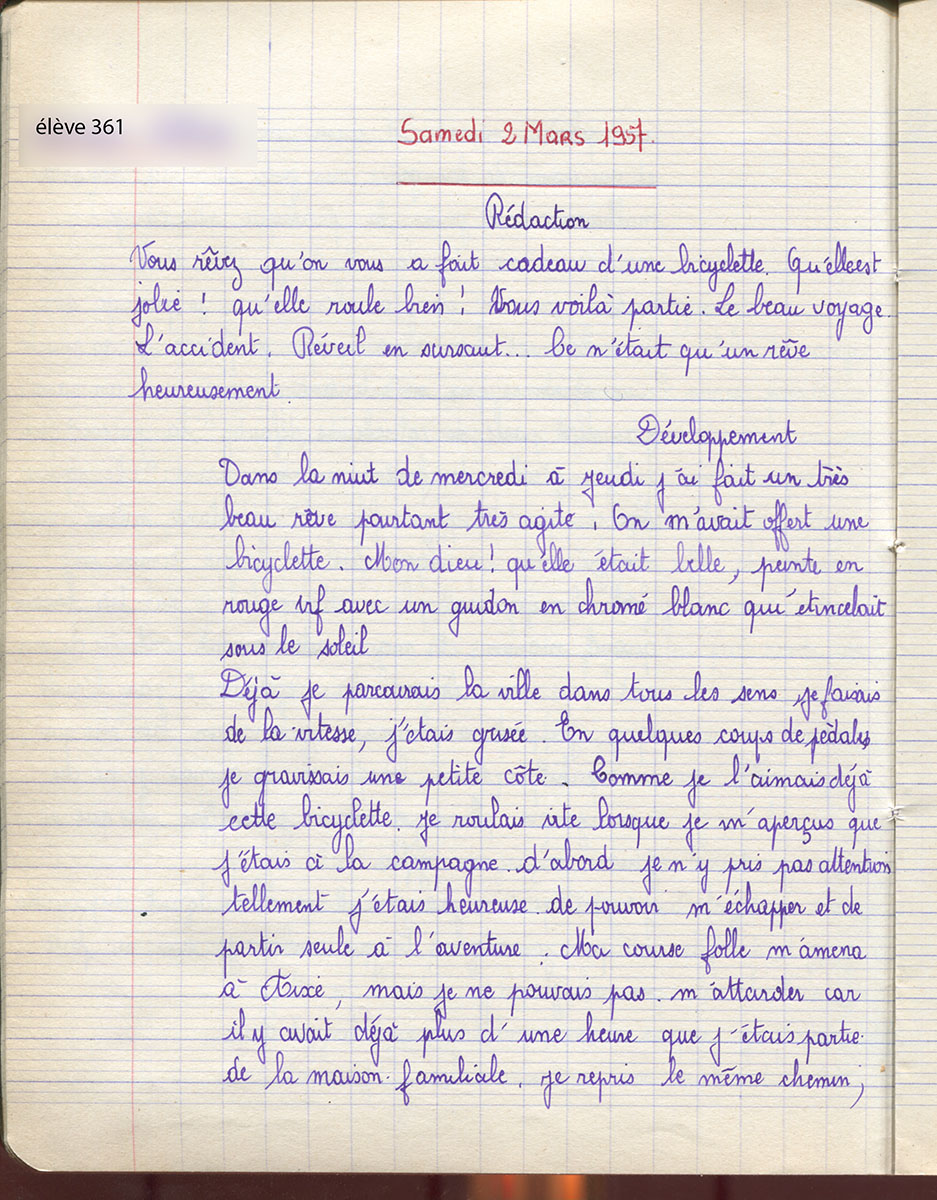 élève 361
Samedi 2 Mars 1957.
Rédaction
Vous rêvez qu'on vous a fait cadeau d'une bicyclette. Qu'elle est
jolie ! qu'elle roule bien ! Vous voilà partie. Le beau voyage.
L'accident. Réveil en sursaut... Ce n'était qu'un rêve
heureusement.
Développement
Dans la niut de mercredi à jeudi j'ai fait un très
beau rêve pourtant très agité. On m'avait offert une
bicyclette. Mon dieu ! qu'elle était belle, peinte en
rouge vif avec un guidon en chromé blanc qui étincelait
sous le soleil
Déjà je parcourais la ville dans tous les sens je faisais
de la vitesse, j'étais grisée. En quelques coups de pédales
je gravissais une petite côte. Comme je l'aimais déjà
cette bicyclette. je roulais vite lorsque je m'aperçus que
j'étais à la campagne. d'abord je n'y pris pas attention
tellement j'étais heureuse de pouvoir m'échapper et de
partir seule à l'aventure. Ma course folle m'amena
à Aixe, mais je ne pouvais pas m'attarder car
il y avait déjà plus d'une heure que j'étais partie
de la maison familiale. je repris le même chemin,